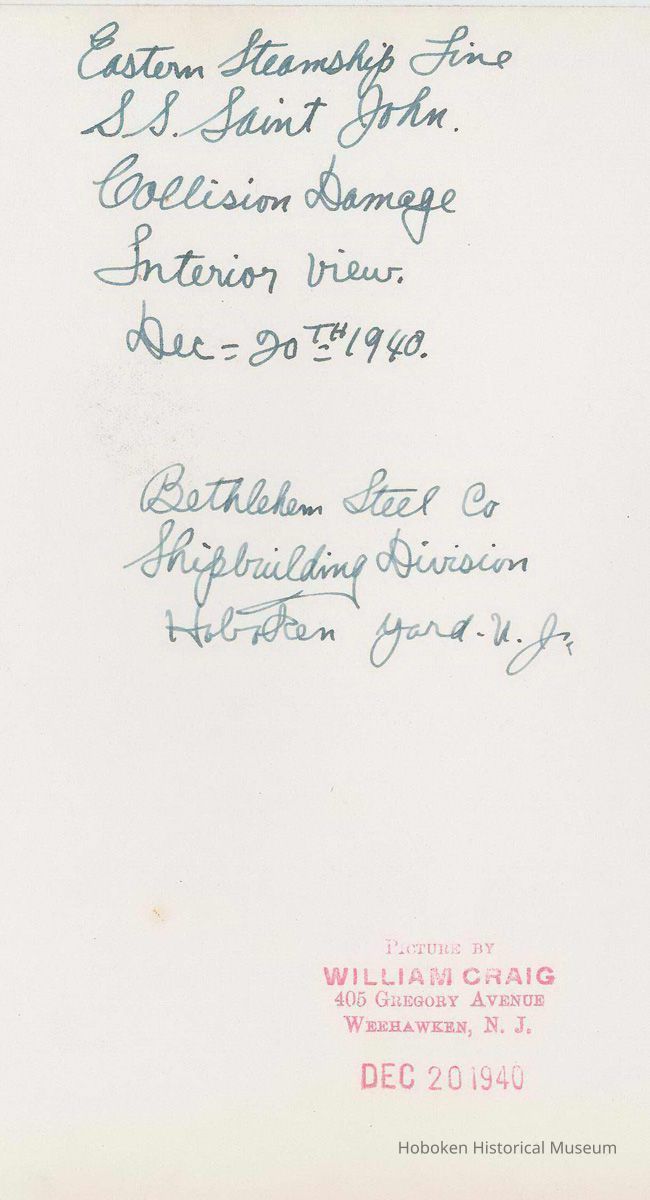 Eastern Steamship Line
S.S. Saint John.
Collision Damage
Interior View.
Dec = 20TH 1940.
Bethlehem Steel Co
Shipbuilding Division
Hoboken Yard - N. J.
PICTURE BY
WILLIAM CRAIG
405 GREGORY AVENUE
WEEHAWKEN, N. J.
DEC 20 1940
Hoboken Historical Museum